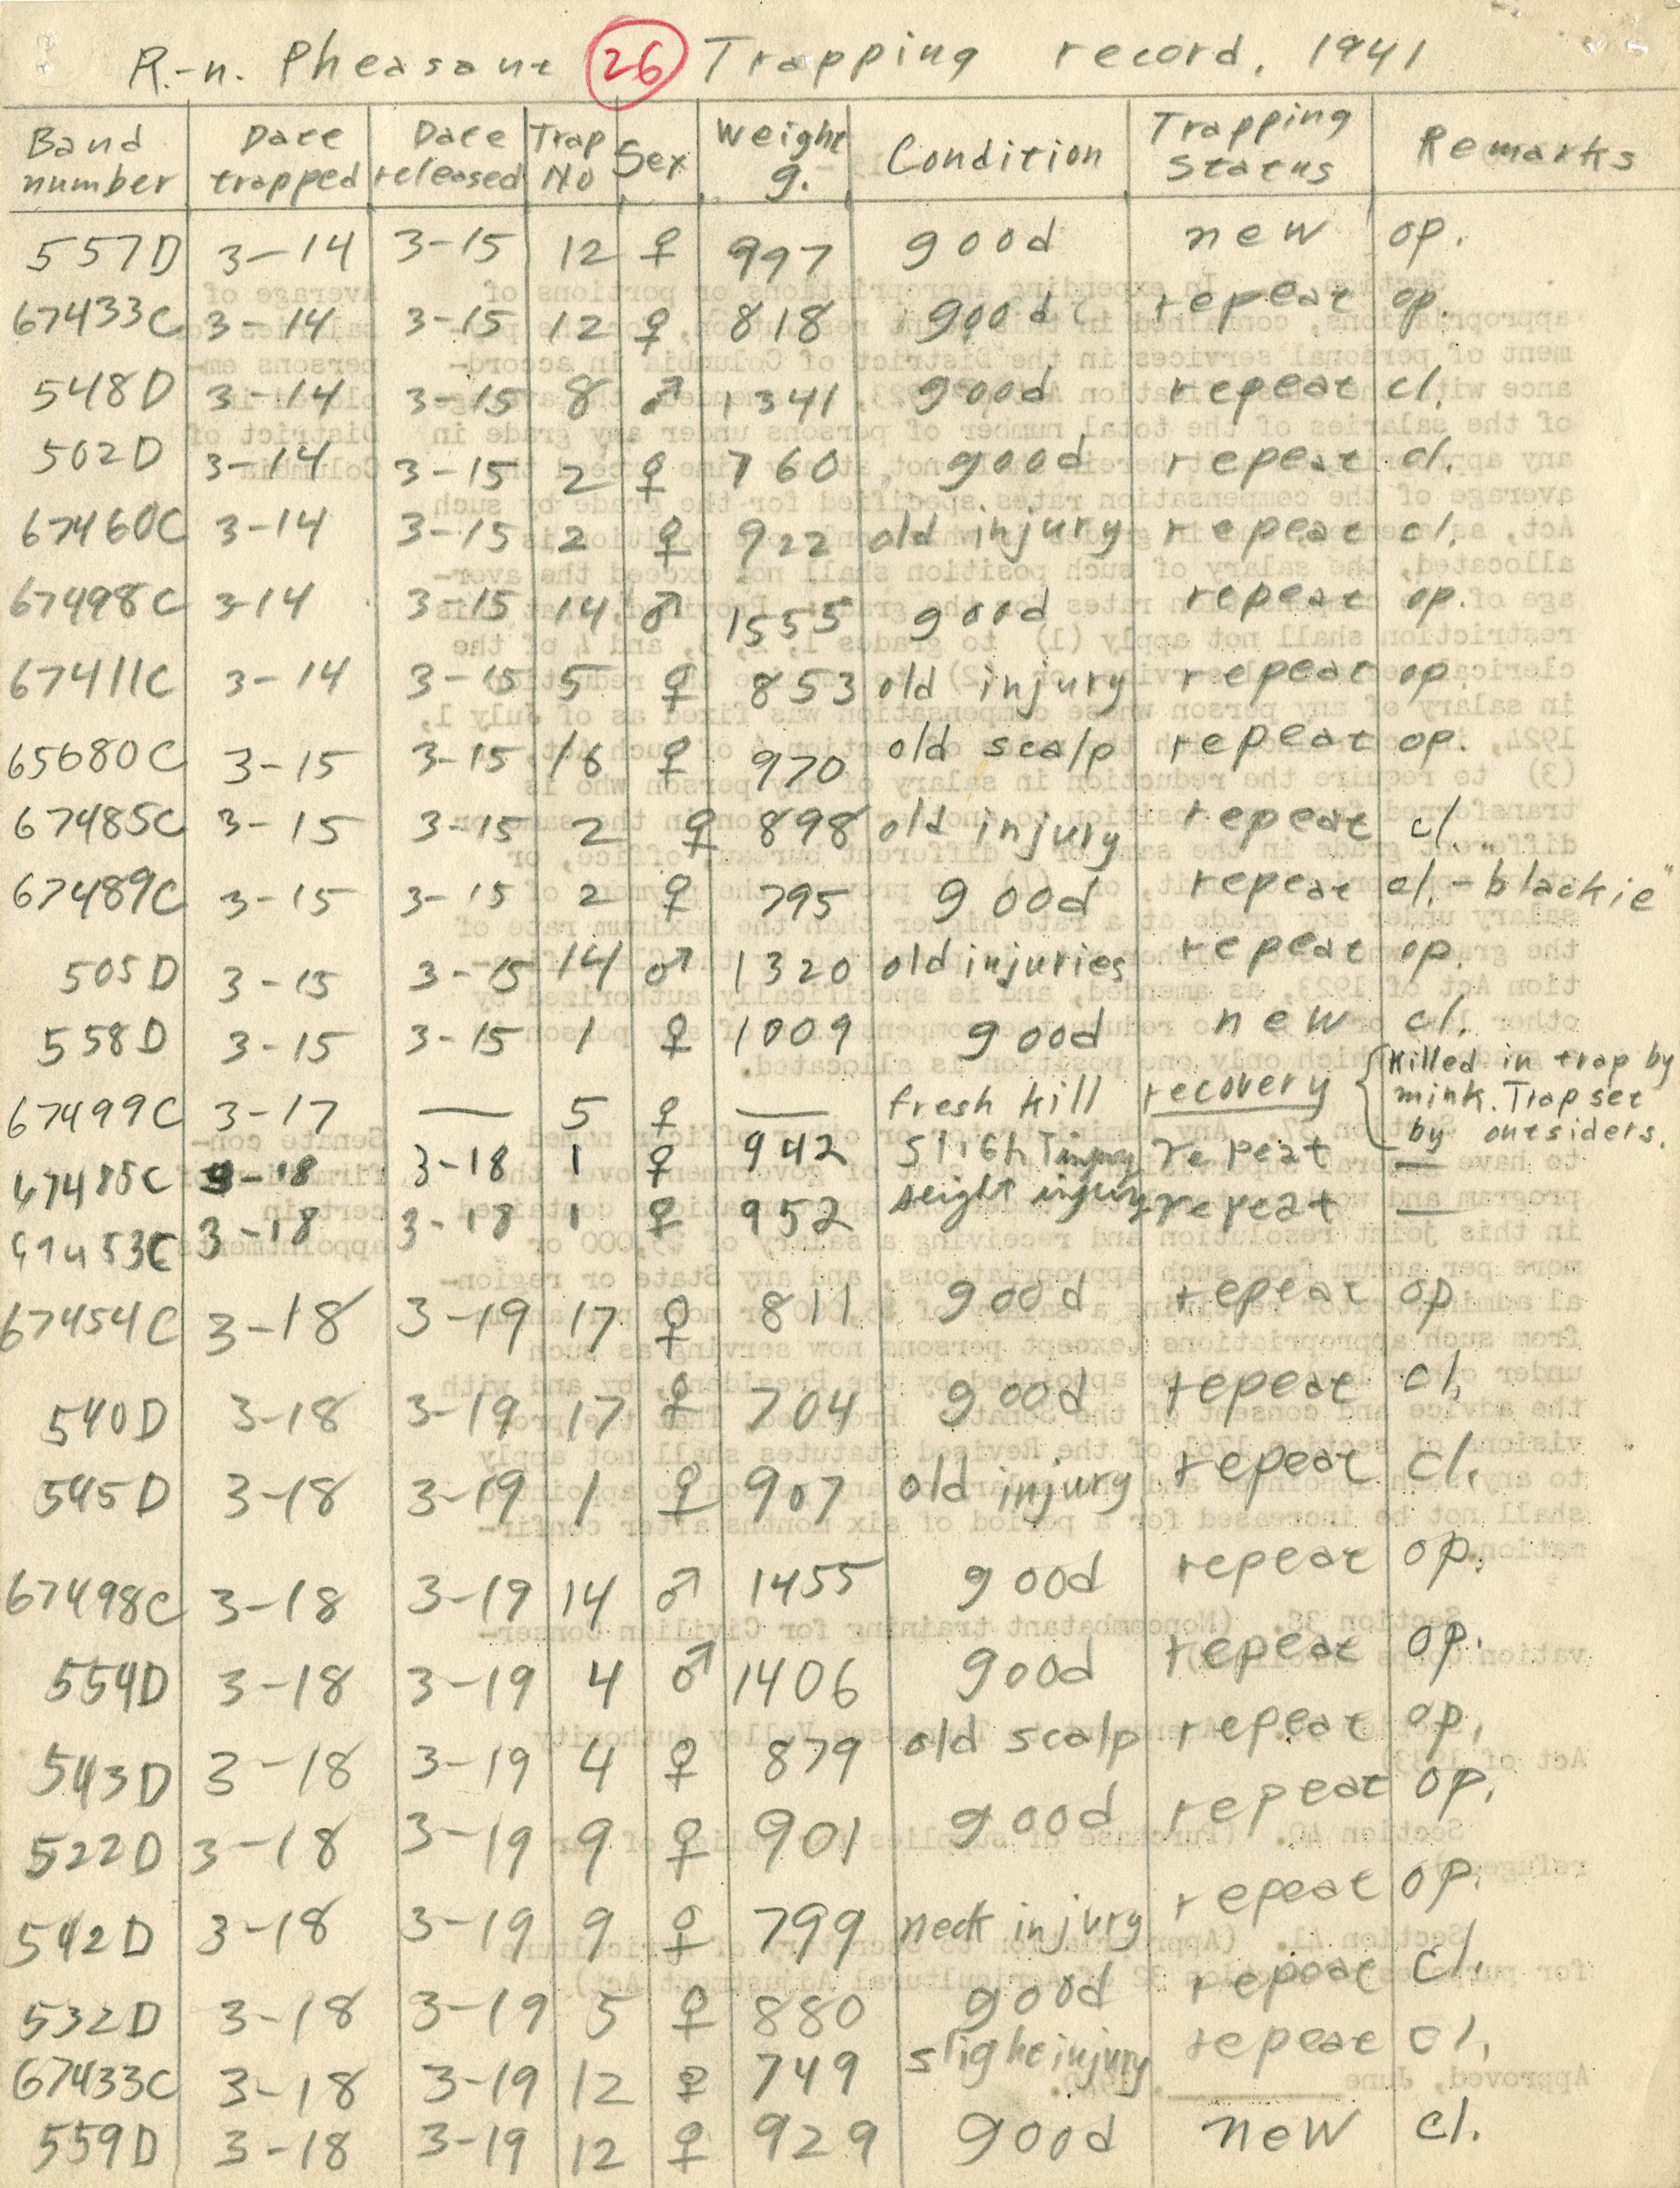 R.-n. Pheasant 26 Trapping record, 1941
Band number Date trapped Date released Trap No Sex Weight g. Condition Trapping Status Remarks
557D 3-14 3-15 12 ♀ 997 good new op.
67433C 3-14 3-15 12 ♀ 818 good repeat op.
548D 3-14 3-15 8 ♂ 1341 good repeat cl.
502D 3-14 3-15 2 ♀ 760 good repeat cl.
67460C 3-14 3-15 2 ♀ 922 old injury repeat cl.
67498C 3-14 3-15 14 ♂ 1555 good repeat op.
67411C 3-14 3-15 5 ♀ 853 old injury repeat op.
65680C 3-15 3-15 16 ♀ 970 old scalp repeat op.
67485C 3-15 3-15 2 ♀ 898 old injury repeat cl.
67489C 3-15 3-15 2 ♀ 795 good repeat cl. - "blackie"
505D 3-15 3-15 14 ♂ 1320 old injuries repeat op.
558D 3-15 3-15 1 ♀ 1009 good new cl.
67499C 3-17 — 5 ♀ — fresh kill recovery { Killed in trap by mink. Trap set by outsiders.
67485C 3-18 3-18 1 ♀ 942 slight injury repeat —
67453C 3-18 3-18 1 ♀ 952 slight injury repeat —
67454C 3-18 3-19 17 ♀ 811 good repeat op
540D 3-18 3-19 17 ♀ 704 good repeat cl.
545D 3-18 3-19 1 ♀ 907 old injury repeat cl.
67498C 3-18 3-19 14 ♂ 1455 good repeat op.
554D 3-18 3-19 4 ♂ 1406 good repeat op.
543D 3-18 3-19 4 ♀ 879 old scalp repeat op.
522D 3-18 3-19 9 ♀ 901 good repeat op.
542D 3-18 3-19 9 ♀ 799 neck injury repeat op.
532D 3-18 3-19 5 ♀ 880 good repeat cl.
67433C 3-18 3-19 12 ♀ 749 slight injury repeat cl.
559D 3-18 3-19 12 ♀ 929 good new cl.